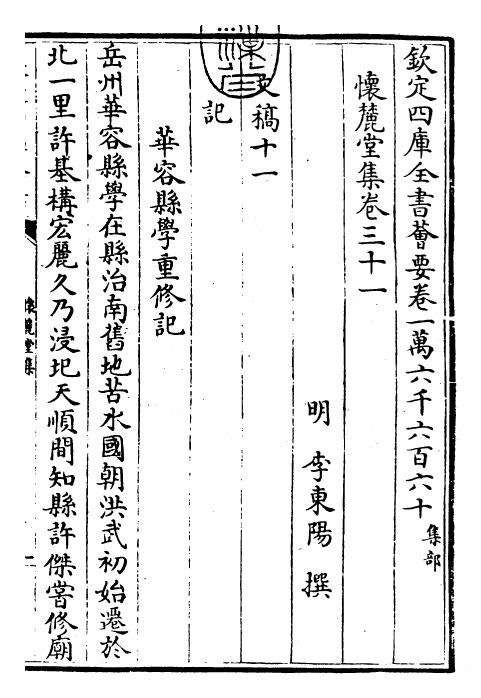 欽定四庫全書薈要卷一萬六千六百六十 集部
懷麓堂集卷三十一
明 李東陽 撰
文稿十一
記
華容縣學重修記
岳州華容縣學在縣治南舊地苦水國朝洪武初始遷於
北一里許基構宏麗久乃浸圯天順間知縣許傑嘗修廟
懷麓堂集